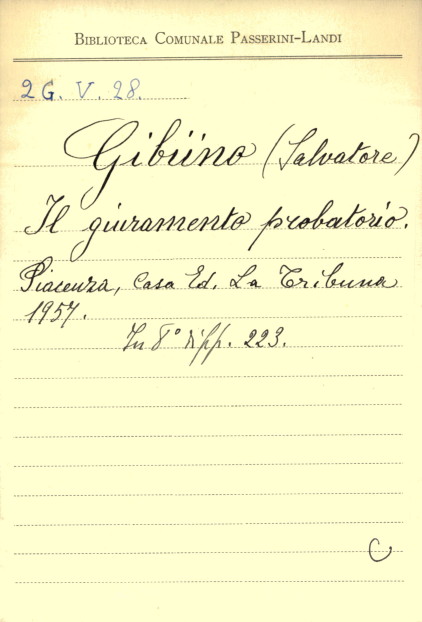 BIBLIOTECA COMUNALE PASSERINI-LANDI
2 G. V. 28.
Gibüno (Salvatore)
Il giuramento probatorio.
Piacenza, Casa Ed. La Tribuna
1957.
In 8° di pp. 223.
C